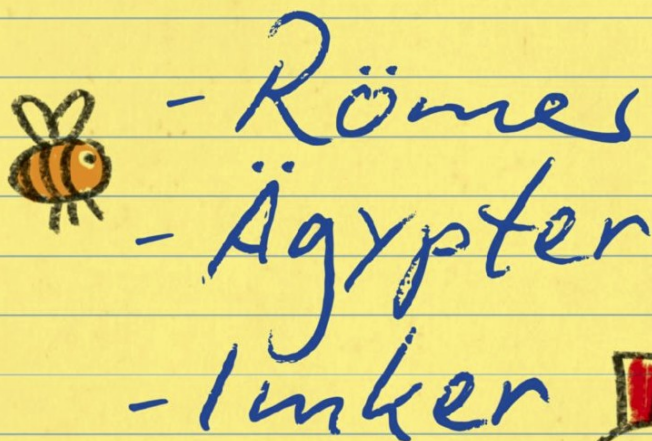 - Römer
- Ägypter
- Imker